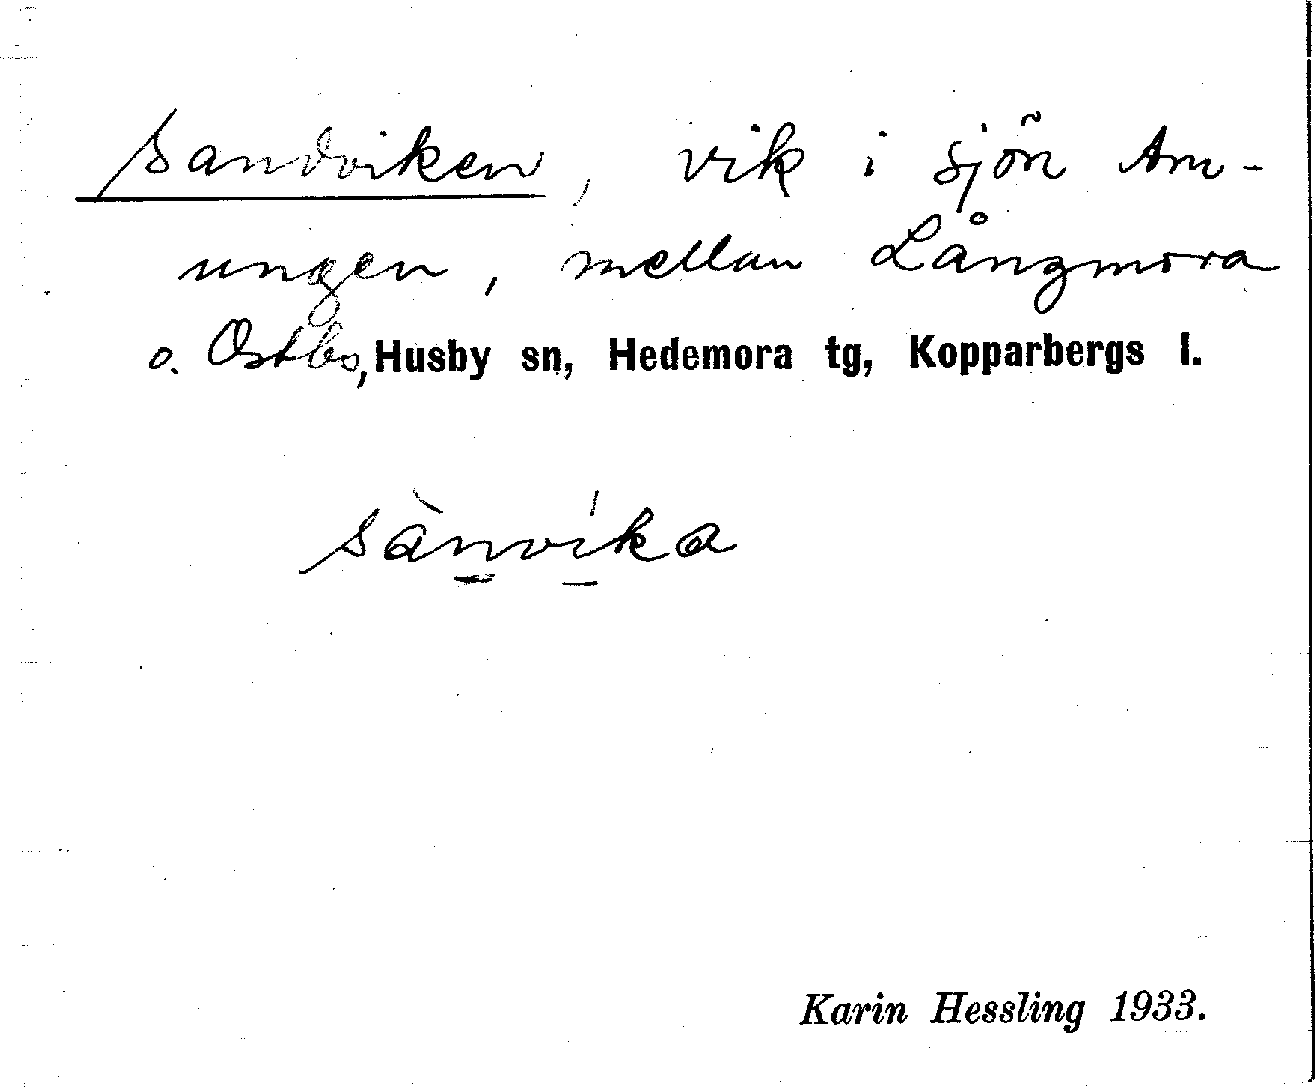 Sandviken, vik i sjön Am-
ungen, mellan Långmora
o. Ostbo, Husby sn, Hedemora tg, Kopparbergs l.
sànvíka
Karin Hessling 1933.